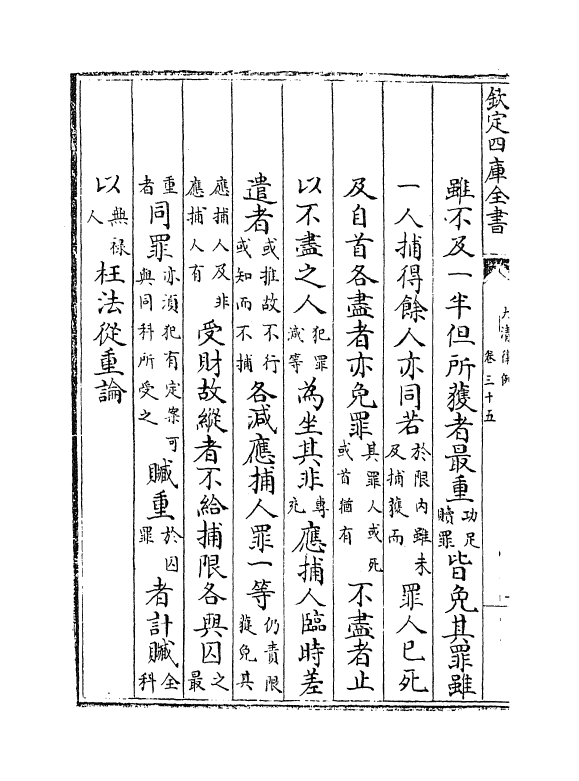 欽定四庫全書
大清律例
卷三十五
雖不及一半但所獲者最重功足贖罪皆免其罪雖
一人捕得餘人亦同若於限内雖未及捕獲而罪人已死
及自首各盡者亦免罪其罪人或死或首猶有不盡者止
以不盡之人犯罪減等為坐其非專充應捕人臨時差
遣者或推故不行或知而不捕各減應捕人罪一等仍責限獲免其
應捕人及非應捕人有受財故縱者不給捕限各與囚之最
重者同罪亦須犯有定案可與同科所受之贓重於囚罪者計贓全科
以無祿人枉法從重論